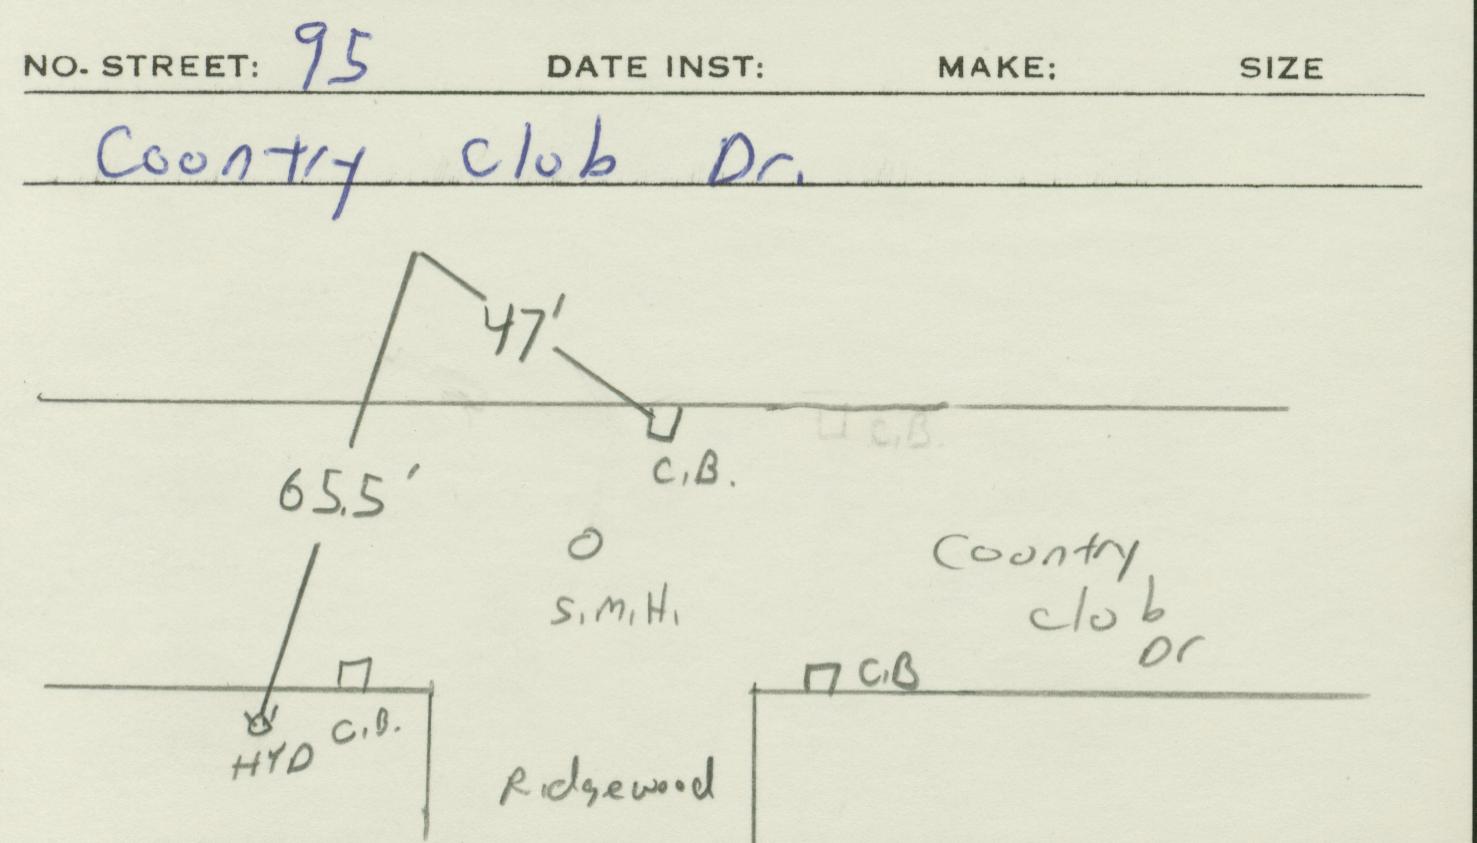 NO. STREET: 95 DATE INST: MAKE: SIZE
Country Club Dr.
47'
C.B.
C.B.
65.5'
S.M.H.
Country
Club
Dr
C.B
C.B.
HYD
Ridgewood